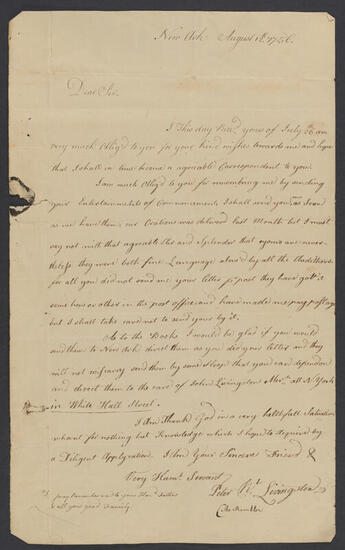 New Ark August 1st 1756.
Dear Sir.
I This day Recd. yours of July 26 am
very much Oblig'd to you for your kind wishes towards me and hope
that I shall in time become a agreeable Correspondent to you.
I am much Oblig'd to you for remembring me by sending
your Entertainments of Commencement I shall send you as soon
as we have them, our Orations was deliverd last Month but I must
say not with that agreable and Splender that yours are never-
theless they were both fine Language alow'd by all the Auditors
for all you did not send me your letter pr. post they have got it
some how or other in the post office and have made me pay postage
but I shall take care not to send yours by it.
As to the Books I would be glad if you would
send them to New Ark direct them as you did your letter and they
will not send them by some Sloop that you can depend on
and direct them to the care of John Livingston Mert. at N York
in White Hall Street.
I Am Thank God in a very
whant for nothing but Knowledge which I hope to Acquired by
a Diligent Applycation I Am Your Sincere Friend &
Very Humb. Servant
Peter Rt. Livingston
PS pray Remember me to your Hon. Father
& all your good Family